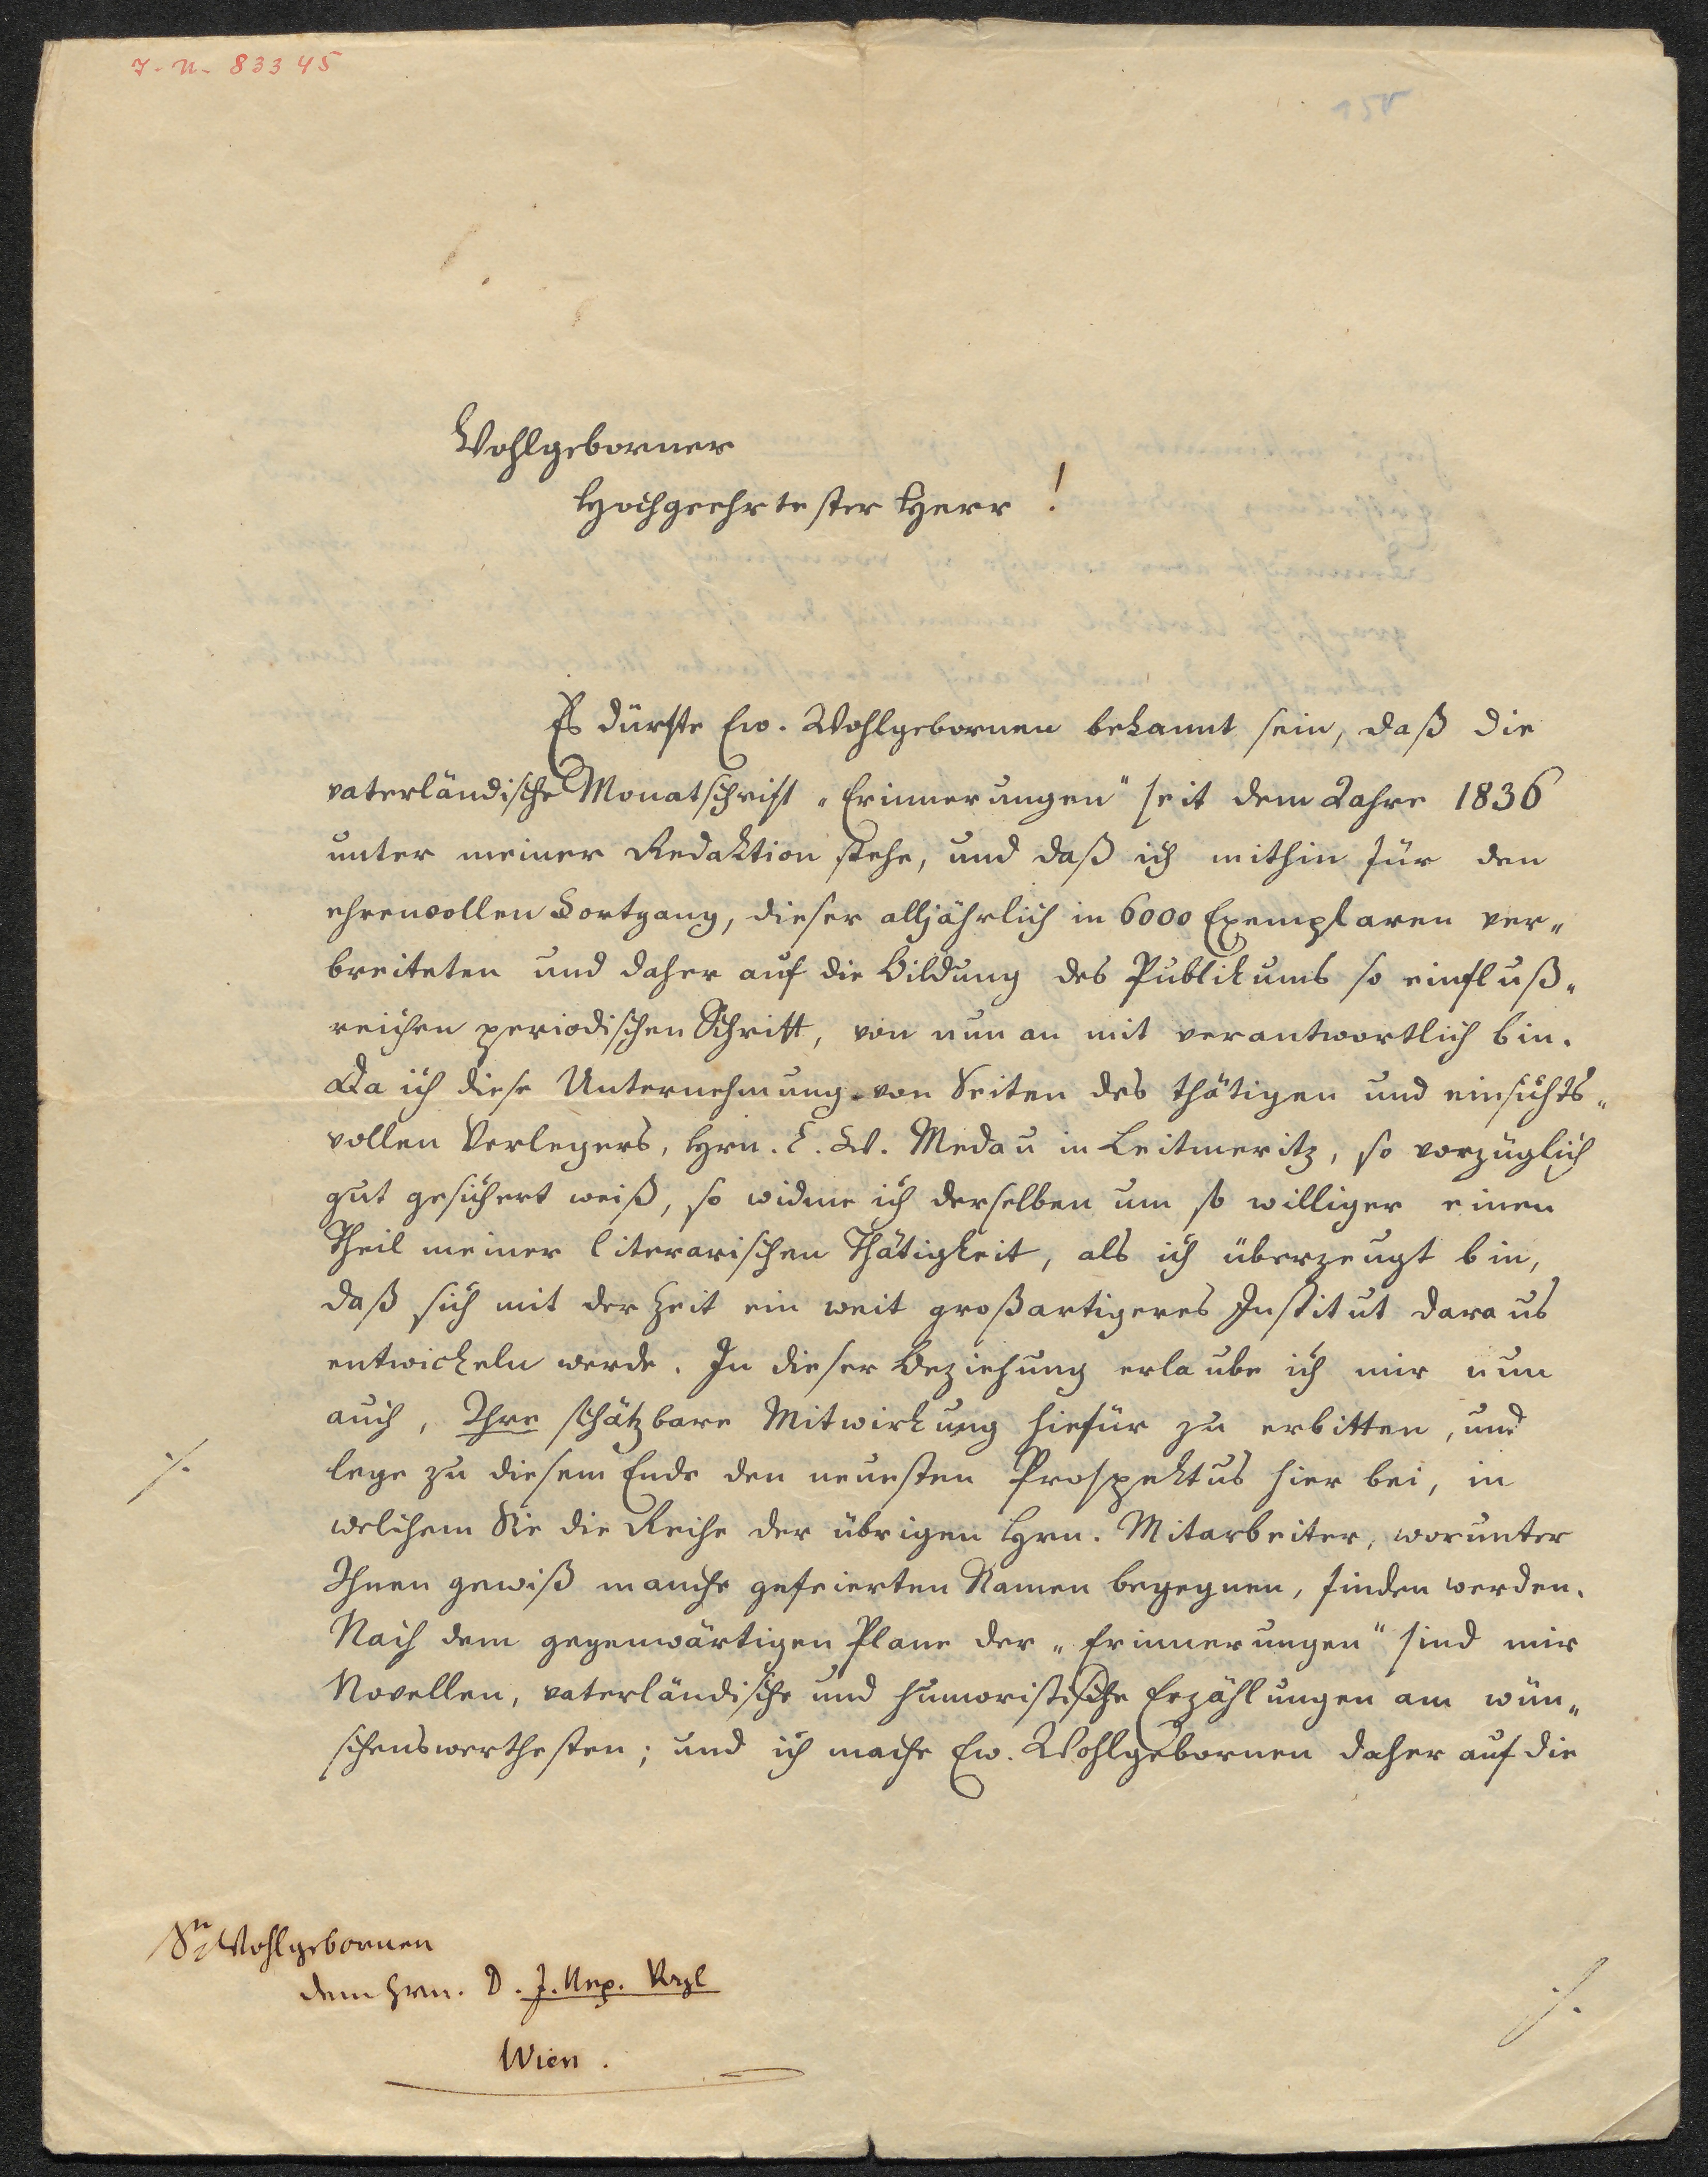 I. N. 83345
Wohlgeborner
Hochgeehrtester Herr!
Es dürfte Ew. Wohlgebornen bekannt sein, daß die
vaterländische Monatschrift „Erinnerungen" seit dem Jahre 1836
unter meiner Redaktion stehe, und daß ich mithin für den
ehrenvollen Fortgang, dieser alljährlich in 6000 Exemplaren ver„
breiteten und daher auf die Bildung des Publikums so einfluß„
reichen periodischen Schrift, von nun an mit verantwortlich bin.
Da ich diese Unternehmung von Seiten des thätigen und einsichts„
vollen Verlegers, Hrn. C. W. Medau in Leitmeritz, so vorzüglich
gut gesichert weiß, so widme ich derselben um so williger einen
Theil meiner literarischen Thätigkeit, als ich überzeugt bin,
daß sich mit der Zeit ein weit großartigeres Institut daraus
entwickeln werde. In dieser Beziehung erlaube ich mir nun
auch, Ihre schätzbare Mitwirkung hiefür zu erbitten, und
./. lege zu diesem Ende den neuesten Prospektus hier bei, in
welchem Sie die Reihe der übrigen Hrn. Mitarbeiter, worunter
Ihnen gewiß manche gefeierten Namen begegnen, finden werden.
Nach dem gegenwärtigen Plane der „Erinnerungen" sind mir
Novellen, vaterländische und humoristische Erzählungen am wün„
schenswerthesten; und ich mache Ew. Wohlgebornen daher auf die
Sr Wohlgebornen
dem Hrn. D. J. Nep. Vogl
Wien.
./.